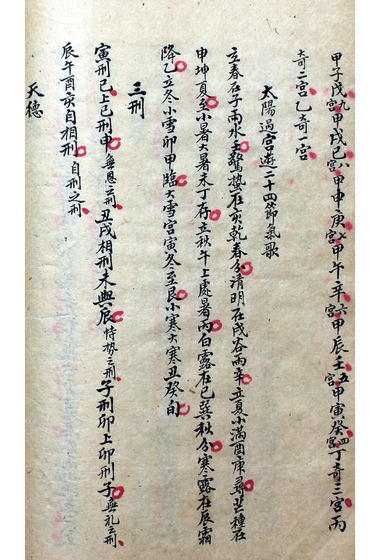 甲子戊九宮甲戌己八宮甲申庚七宮甲午辛六宮甲辰壬五宮甲寅癸四宮丁奇三宮丙
奇二宮乙奇一宮
太陽過宮遊二十四節氣歌
立春在子雨水壬驚蟄在亥乾春分清明在戌谷雨辛立夏小滿酉庚尋芒種在
申坤夏至小暑大暑未丁存立秋午上處暑丙白露在巳巽秋分寒露在辰霜
降乙立冬小雪卯甲臨大雪宮寅冬至艮小寒大寒丑癸的
三刑
寅刑巳上巳刑申無恩之刑丑戌相刑未與辰恃勢之刑子刑卯上卯刑子無礼之刑
辰午酉亥自相刑自刑之刑
天德